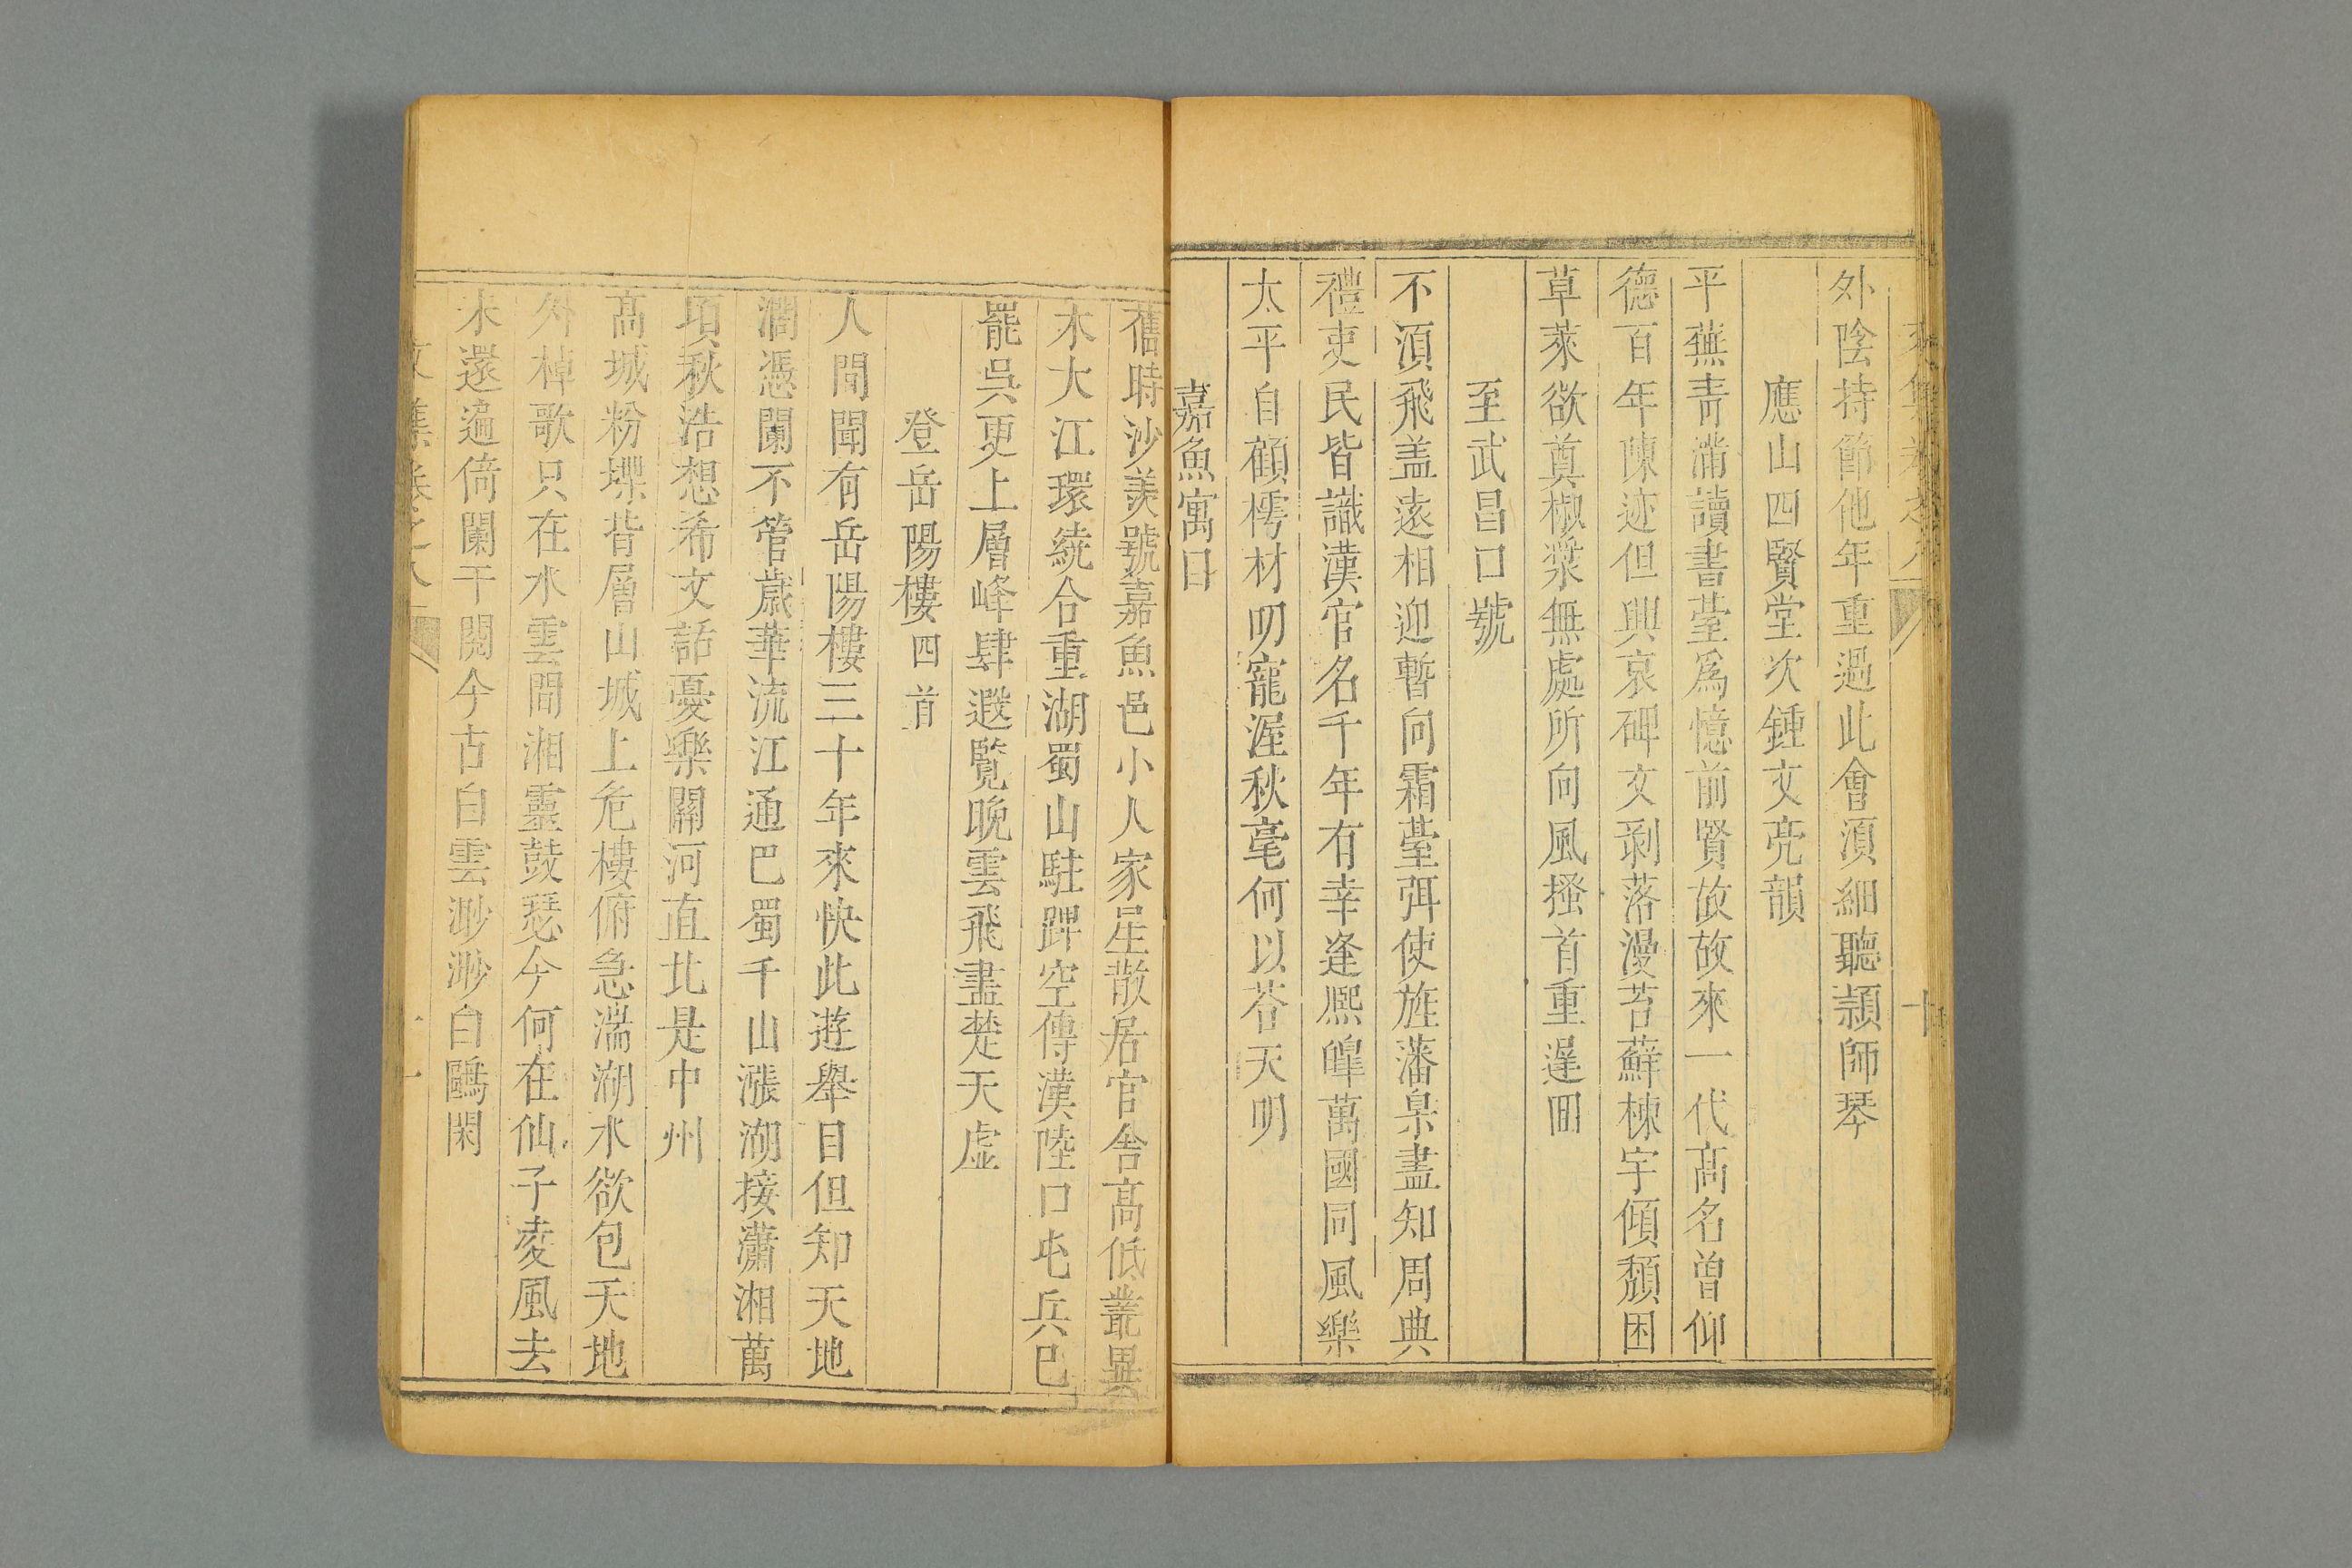 外陰持節他年重過此會須細聽頴師琴
應山四賢堂次鍾文亮韻
平蕪青滿讀書臺爲憶前賢故故來一代高名曾仰
德百年陳迹但興哀碑文剥落漫苔蘚棟宇傾頽困
草萊欲奠椒漿無處所向風搔首重遲囬
至武昌口號
不湏飛盖遠相迎暫向霜臺弭使旌藩臬盡知周典
禮吏民皆識漢官名千年有幸逢熈皥萬國同風樂
太平自顧樗材叨寵渥秋毫何以荅天明
嘉魚寓目
舊時沙羡號嘉魚邑小人家星散居官舎高低叢異
木大江環繞合重湖蜀山駐蹕空傳漢陸口屯兵已
罷吳更上層峰肆遐覧晩雲飛盡楚天虛
登岳陽樓四首
人間聞有岳陽樓三十年來快此遊舉目但知天地
濶憑闌不管歲華流江通巴蜀千山漲湖接瀟湘萬
頃秋浩想希文話憂樂關河直北是中州
高城粉堞背層山城上危樓俯急湍湖水欲包天地
外棹歌只在水雲間湘靈鼓瑟今何在仙子凌風去
未還遍倚闌干閱今古白雲渺渺白鷗閑
集卷之八
十一